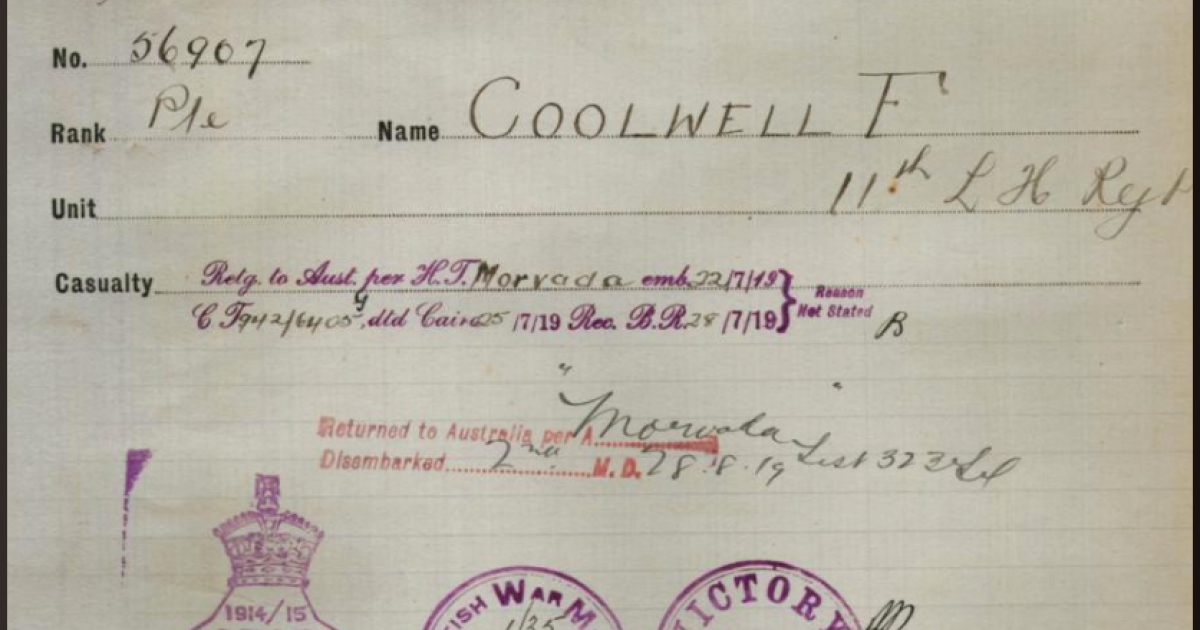 No. 56907
Rank Pte Name COOLWELL F
Unit 11th L H Regt
Casualty Retg. to Aust. per H.T. Morvada emb. 22/7/19 } Reason Not Stated
C.F. 942/6405, dtd Cairo 25/7/19 Rec. B.R. 28/7/19 B
Returned to Australia per A "Morvada"
Disembarked 2nd M.D. 28.8.19 List 323
1914/15
ISH WAR M
1/25
VICTORY